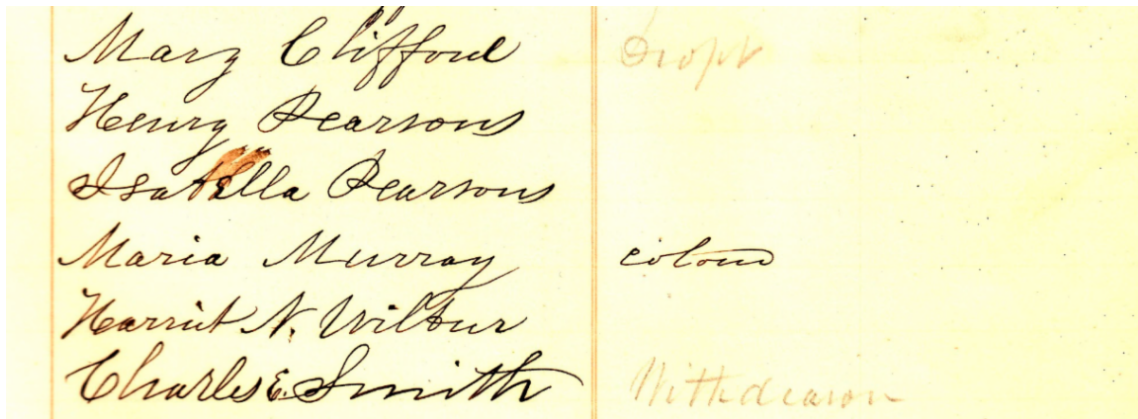 Mary Clifford Dropt
Henry Pearsons
Isabella Pearsons
Maria Murray
Harriet N. Wilbur
Charles E. Smith Withdrawn